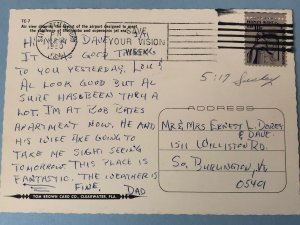 TC-7
Air view showing the layout of the airport designed to meet
the challenge of the jumbo and supersonic jet era.
SAVE
YOUR VISION
WEEK
Hi Mom & Dave,
It was good talking
to you yesterday. Lou &
Al look good but Al
sure has been thru a
lot. I'm at Bob Bates
apartment now. He and
his wife are going to
take me sight seeing
tomorrow. This place is
fantastic. The weather is
fine. Dad
TOM BROWN CARD CO., CLEARWATER, FLA.
5:17 Sunday
ADDRESS
Mr & Mrs Ernest L. Dorey
& Dave
1511 Williston Rd.
So. Burlington, Vt
05401